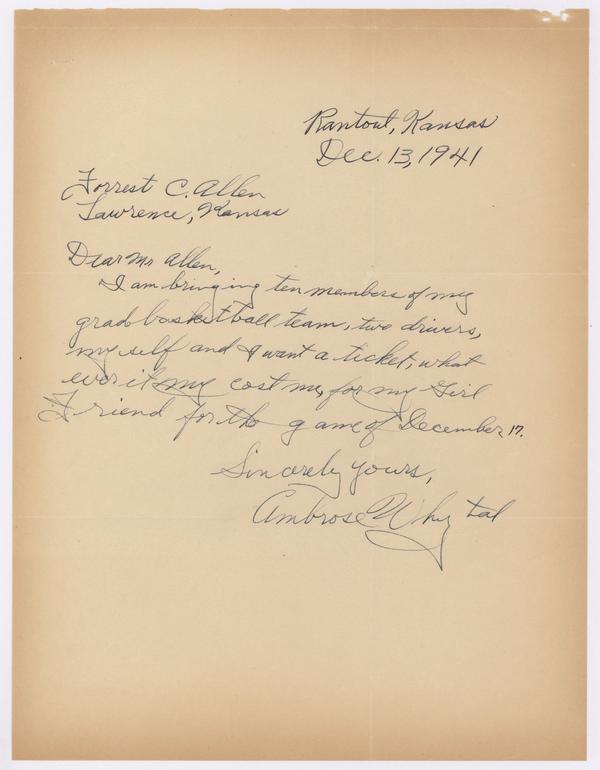 Rantoul, Kansas
Dec. 13, 1941
Forrest C. Allen
Lawrence, Kansas
Dear Mr Allen,
I am bringing ten members of my
grade basketball team, two drivers,
my self and I want a ticket, what
ever it my cost me, for my Girl
Friend for the game of December 17.
Sincerely yours,
Ambrose Whytal